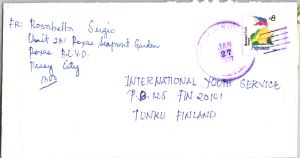 FR: Rosabella Sergio
Unit 281 Roxas Seafront Garden
Roxas BLVD.
Pasay City
1300
JAN
27
8
Pilipinas
INTERNATIONAL YOUTH SERVICE
P.B. 125 FIN 20101
TURKU FINLAND